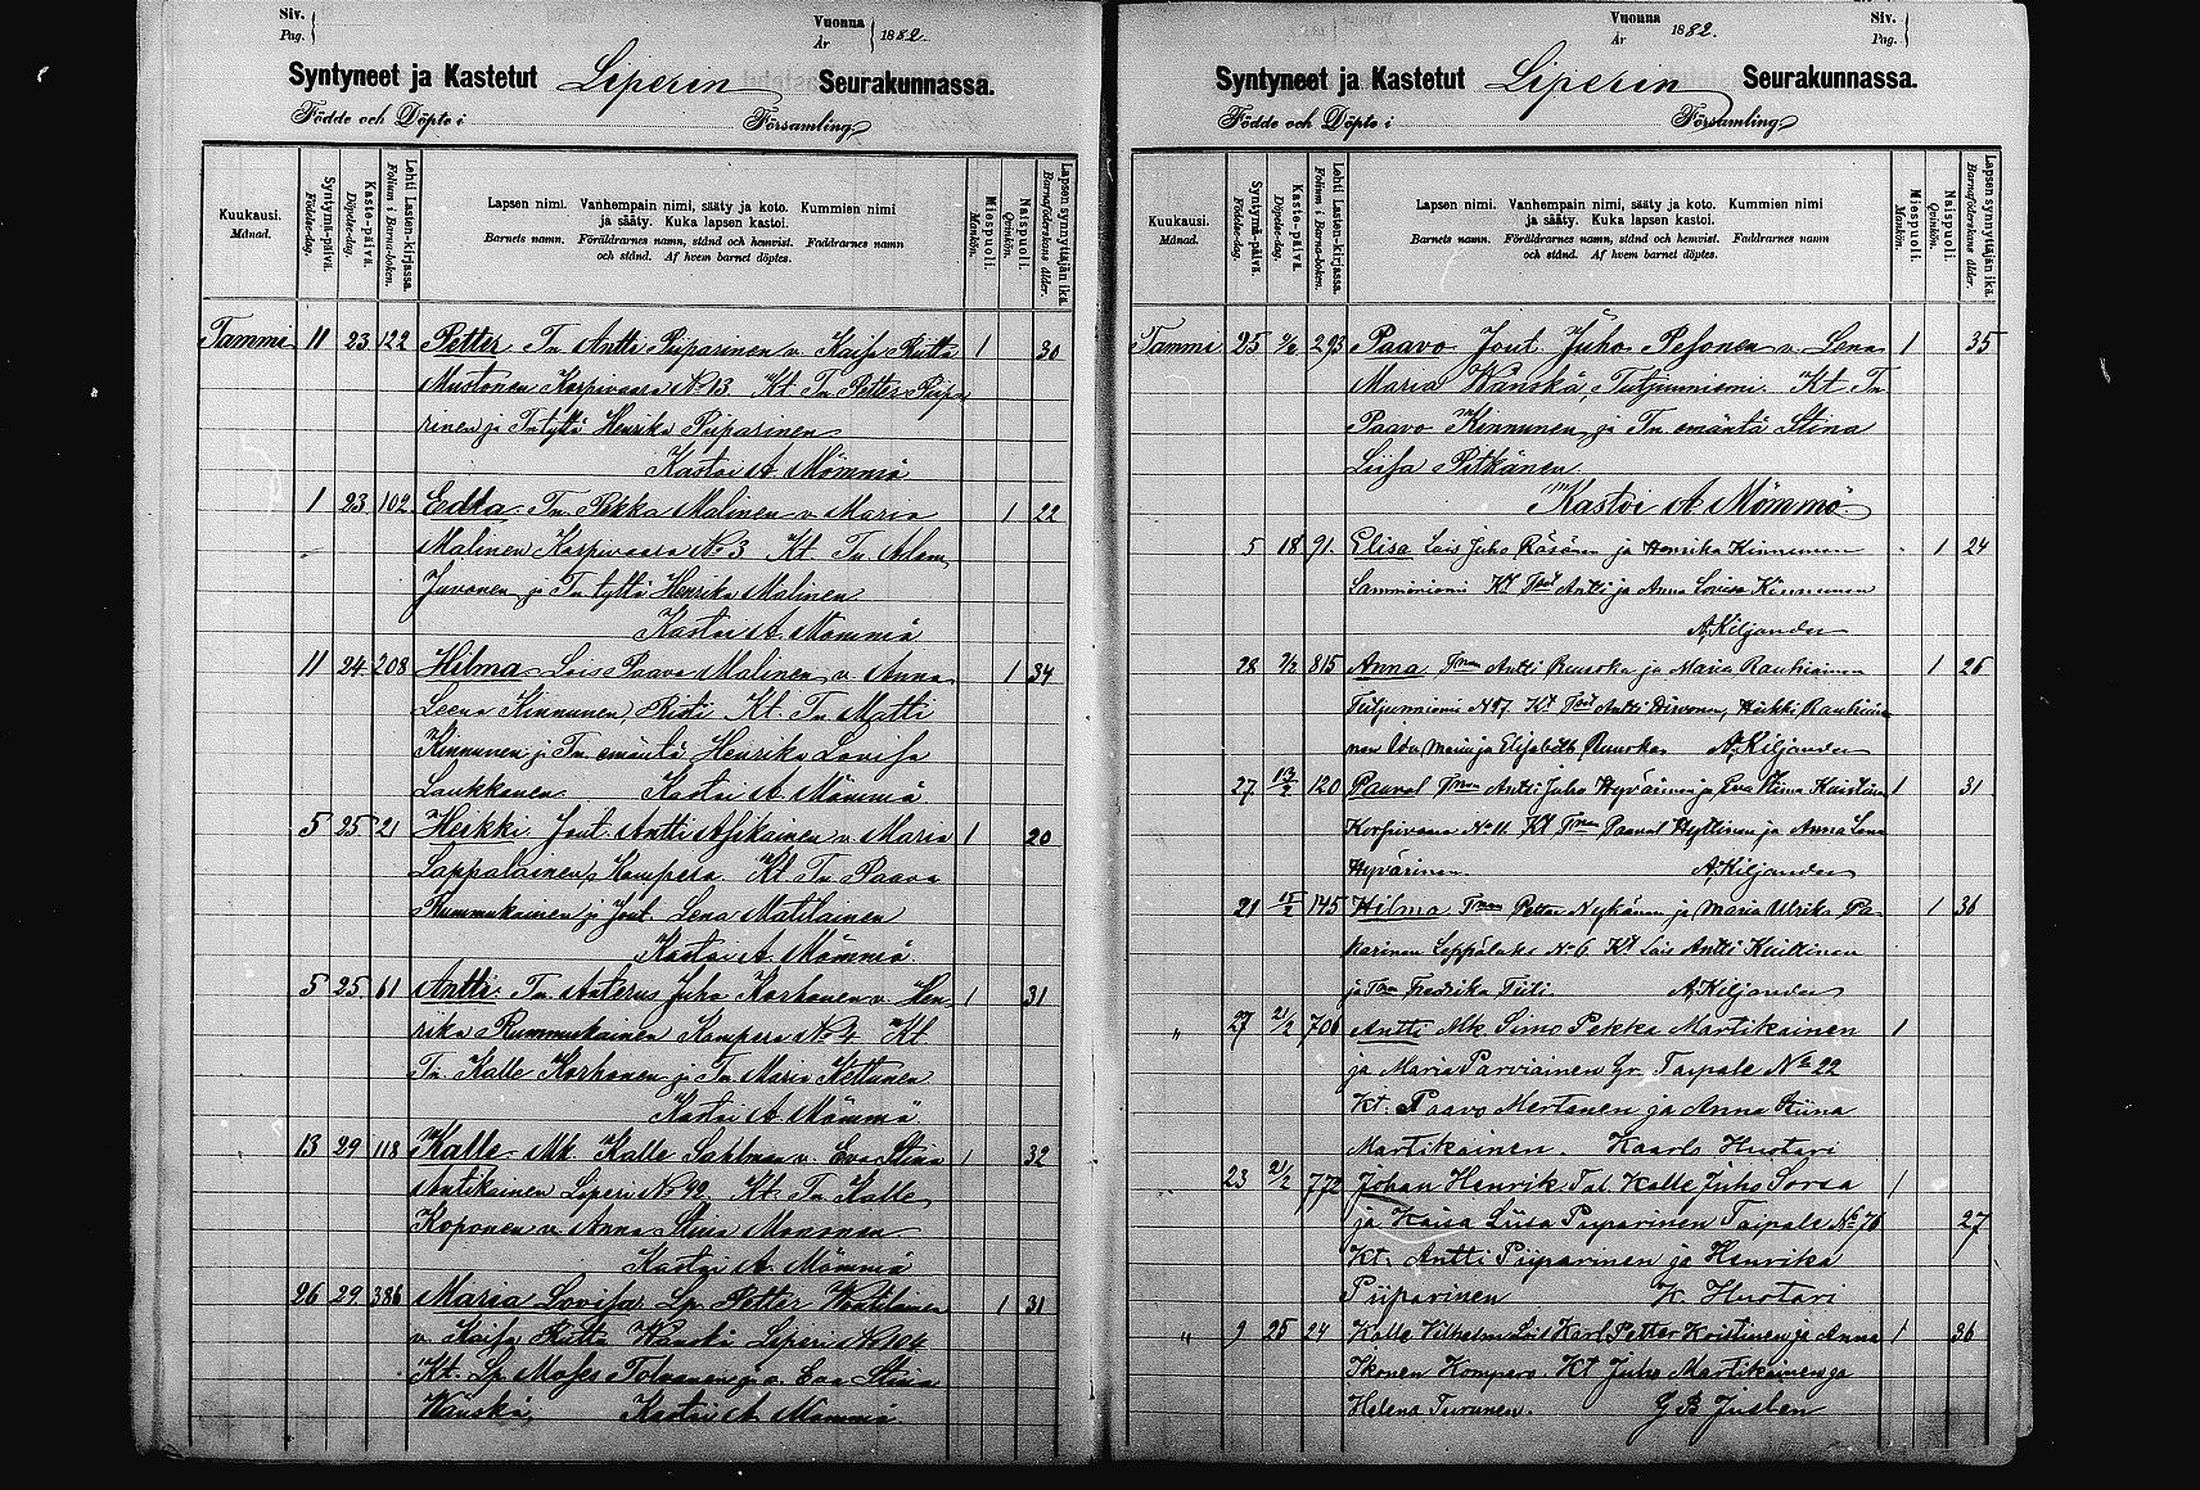 Siv.
Pag.
Vuonna
År
1882.
Syntyneet ja Kastetut Liperin Seurakunnassa.
Födde och Döpte i Församling
Kuukausi.
Månad.
Syntymä-päivä.
Födelse-dag.
Kaste-päivä.
Döpelse-dag.
Lehti Lasten-kirjassa.
Folium i Barna-boken.
Lapsen nimi. Vanhempain nimi, sääty ja koto. Kummien nimi
ja sääty. Kuka lapsen kastoi.
Barnets namn. Föräldrarnes namn, stånd och hemvist. Faddrarnes namn
och stånd. Af hvem barnet döptes.
Miespuoli.
Mankön.
Naispuoli.
Qvinkön.
Lapsensynnyttäjän ikä.
Barnaföderskans ålder.
Tammi 11 23 122 Petter Tn Antti Piiparinen v. Kaisa Riitta 1 30
Mustonen Korpivaara No 13. Kt. Tn Petter Piipa
rinen ja Tn tyttö Henrika Piiparinen
Kastoi A. Mömmö
1 23 102 Edla Tn. Pekka Malinen v. Maria 1 22
Malinen Korpivaara No 3 Kt Tn Adam
Juvonen ja Tn tyttö Henrika Malinen
Kastoi A. Mömmö
11 24 208 Hilma Lois Paavo Malinen v. Anna 1 34
Leena Kinnunen, Risti Kt. Tn. Matti
Kinnunen ja Tn. emäntä Henrika Lovisa
Laukkanen Kastoi A. Mömmö
5 25 21 Heikki Jout. Antti Asikainen v. Maria 1 20
Lappalainen, Kompero Kt. Tn Paavo
Rummukainen ja Jout. Lena Matilainen
Kastoi A. Mömmö.
5 25 61 Antti Tn. Anterus Juho Korhonen v. Hen- 1 31
rika Rummukainen Kompero No 4 Kt
Tn. Kalle Korhonen ja Tn. Maria Kettunen
Kastoi A. Mömmö.
13 29 118 Kalle Mk. Kalle Sahlman v. Eva Stina 1 32
Antikainen Liperi No 42. Kt. Tn Kalle
Koponen v. Anna Stina
Kastoi A. Mömmö
26 29 386 Maria Lovisa Lp. Petter Woutilainen 1 31
v. Kaisa Riitta Wänskä Liperi No 104
Kt. Lp. Moses Tolvanen ja v. Eva Stina
Wänskä, Kastoi A. Mömmö.
Vuonna
År
1882.
Siv.
Pag.
Syntyneet ja Kastetut Liperin Seurakunnassa.
Födde och Döpte i Församling
Kuukausi.
Månad.
Syntymä-päivä.
Födelse-dag.
Kaste-päivä.
Döpelse-dag.
Lehti Lasten-kirjassa.
Folium i Barna-boken.
Lapsen nimi. Vanhempain nimi, sääty ja koto. Kummien nimi
ja sääty. Kuka lapsen kastoi.
Barnets namn. Föräldrarnes namn, stånd och hemvist. Faddrarnes namn
och stånd. Af hvem barnet döptes.
Miespuoli.
Mankön.
Naispuoli.
Qvinkön.
Lapsensynnyttäjän ikä.
Barnaföderskans ålder.
Tammi 25 293 Paavo Jout. Juho Pesonen v. Lena 1 35
Maria Wänskä, Tutjunniemi. Kt Tn
Paavo Kinnunen ja Tn. emäntä Stina
Liisa Pitkänen.
Kastoi A. Mömmö
5 18 91. Elisa Lois Juho Räsänen ja Henrika Kinnunen 1 24
Kt Antti ja Anna Lovisa Kinnunen
A. Kiljander
28 7/2 815 Anna Antti Ruuska ja Maria Rautiainen 1 26
Tutjunniemi No 7. Kt Antti Hirvonen, Heikki Rautiai
nen Eva Maria ja Elisabeth Ruuska A. Kiljander
27 13/2 120 Paavol Tnan Antti Juho Hyvärinen ja Eva Stina 1 31
Korpivaara No 11. Kt Tnan Paavol Hyttinen ja Anna Lena
Hyvärinen. A. Kiljander
21 15/2 145 Hilma Tnan Petter Nykänen ja Maria Ulrika Pa- 1 36
karinen Leppälaks No 6. Kt Lois Antti Kuittinen
ja Tnan Fredrika Tiili. A. Kiljander
" 27 21/2 706 Antti Mk. Simo Pekka Martikainen 1
ja Maria Parviainen Gr. Taipale No 22
Kt. Paavo Mertanen ja Anna Stiina
Martikainen. Kaarlo Huotari
23 21/2 772 Johan Henrik. Tal. Kalle Juho Sorsa 1
ja Kaisa Liisa Piiparinen Taipale No 76 27
Kt. Antti Piiparinen ja Henrika
Piiparinen K. Huotari
" 9 25 24 Kalle Vilhelm Lois Karl Petter Koistinen ja Anna 1 36
Ikonen Kompero. Kt Juho Martikainen ja
Helena Turunen. G B Juslen